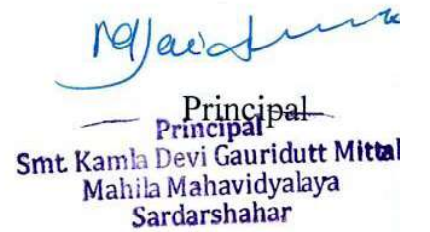 Principal
Principal
Smt. Kamla Devi Gauridutt Mittal
Mahila Mahavidyalaya
Sardarshahar